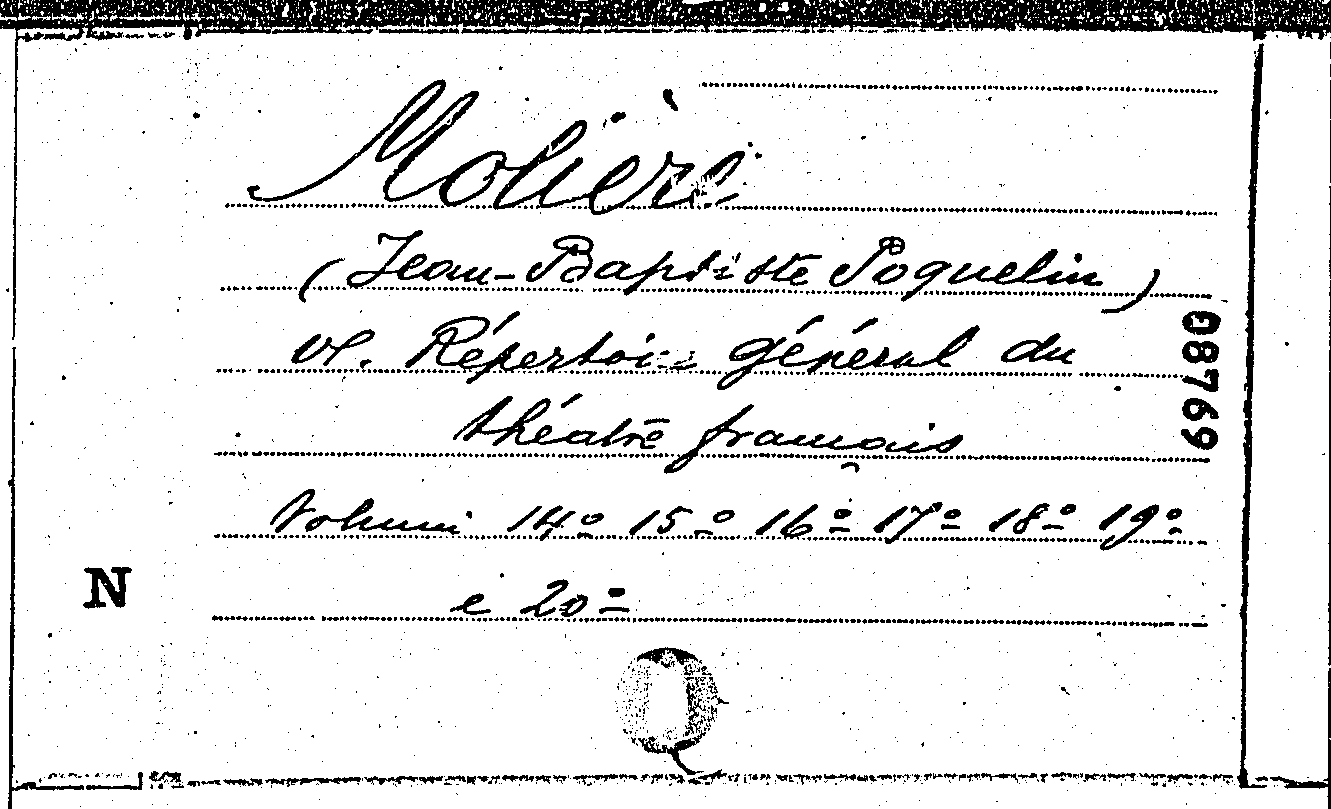 Molière
(Jean-Baptiste Poquelin)
vd. Répertoire général du
théatre français
Volumi 14º 15º 16º 17º 18º 19º
e 20º
N
08769